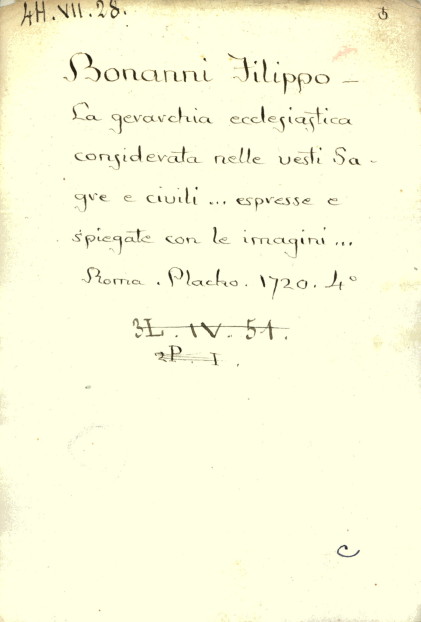 4H.VII.28.
Bonanni Filippo –
La gerarchia ecclesiastica
considerata nelle vesti Sa-
gre e civili ... espresse e
spiegate con le imagini ...
Roma. Placho. 1720. 4°
3L.IV.51.
2P.I.
C